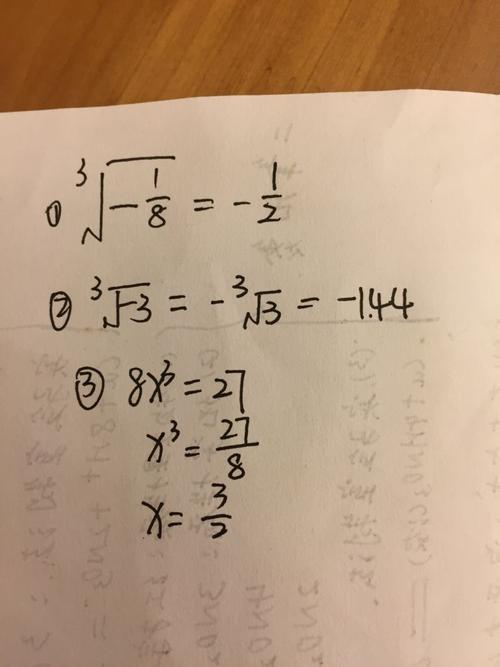 ① ∛(-1/8) = -1/2
② ∛-3 = -∛3 = -1.44
③ 8x³ = 27
x³ = 27/8
x = 3/2